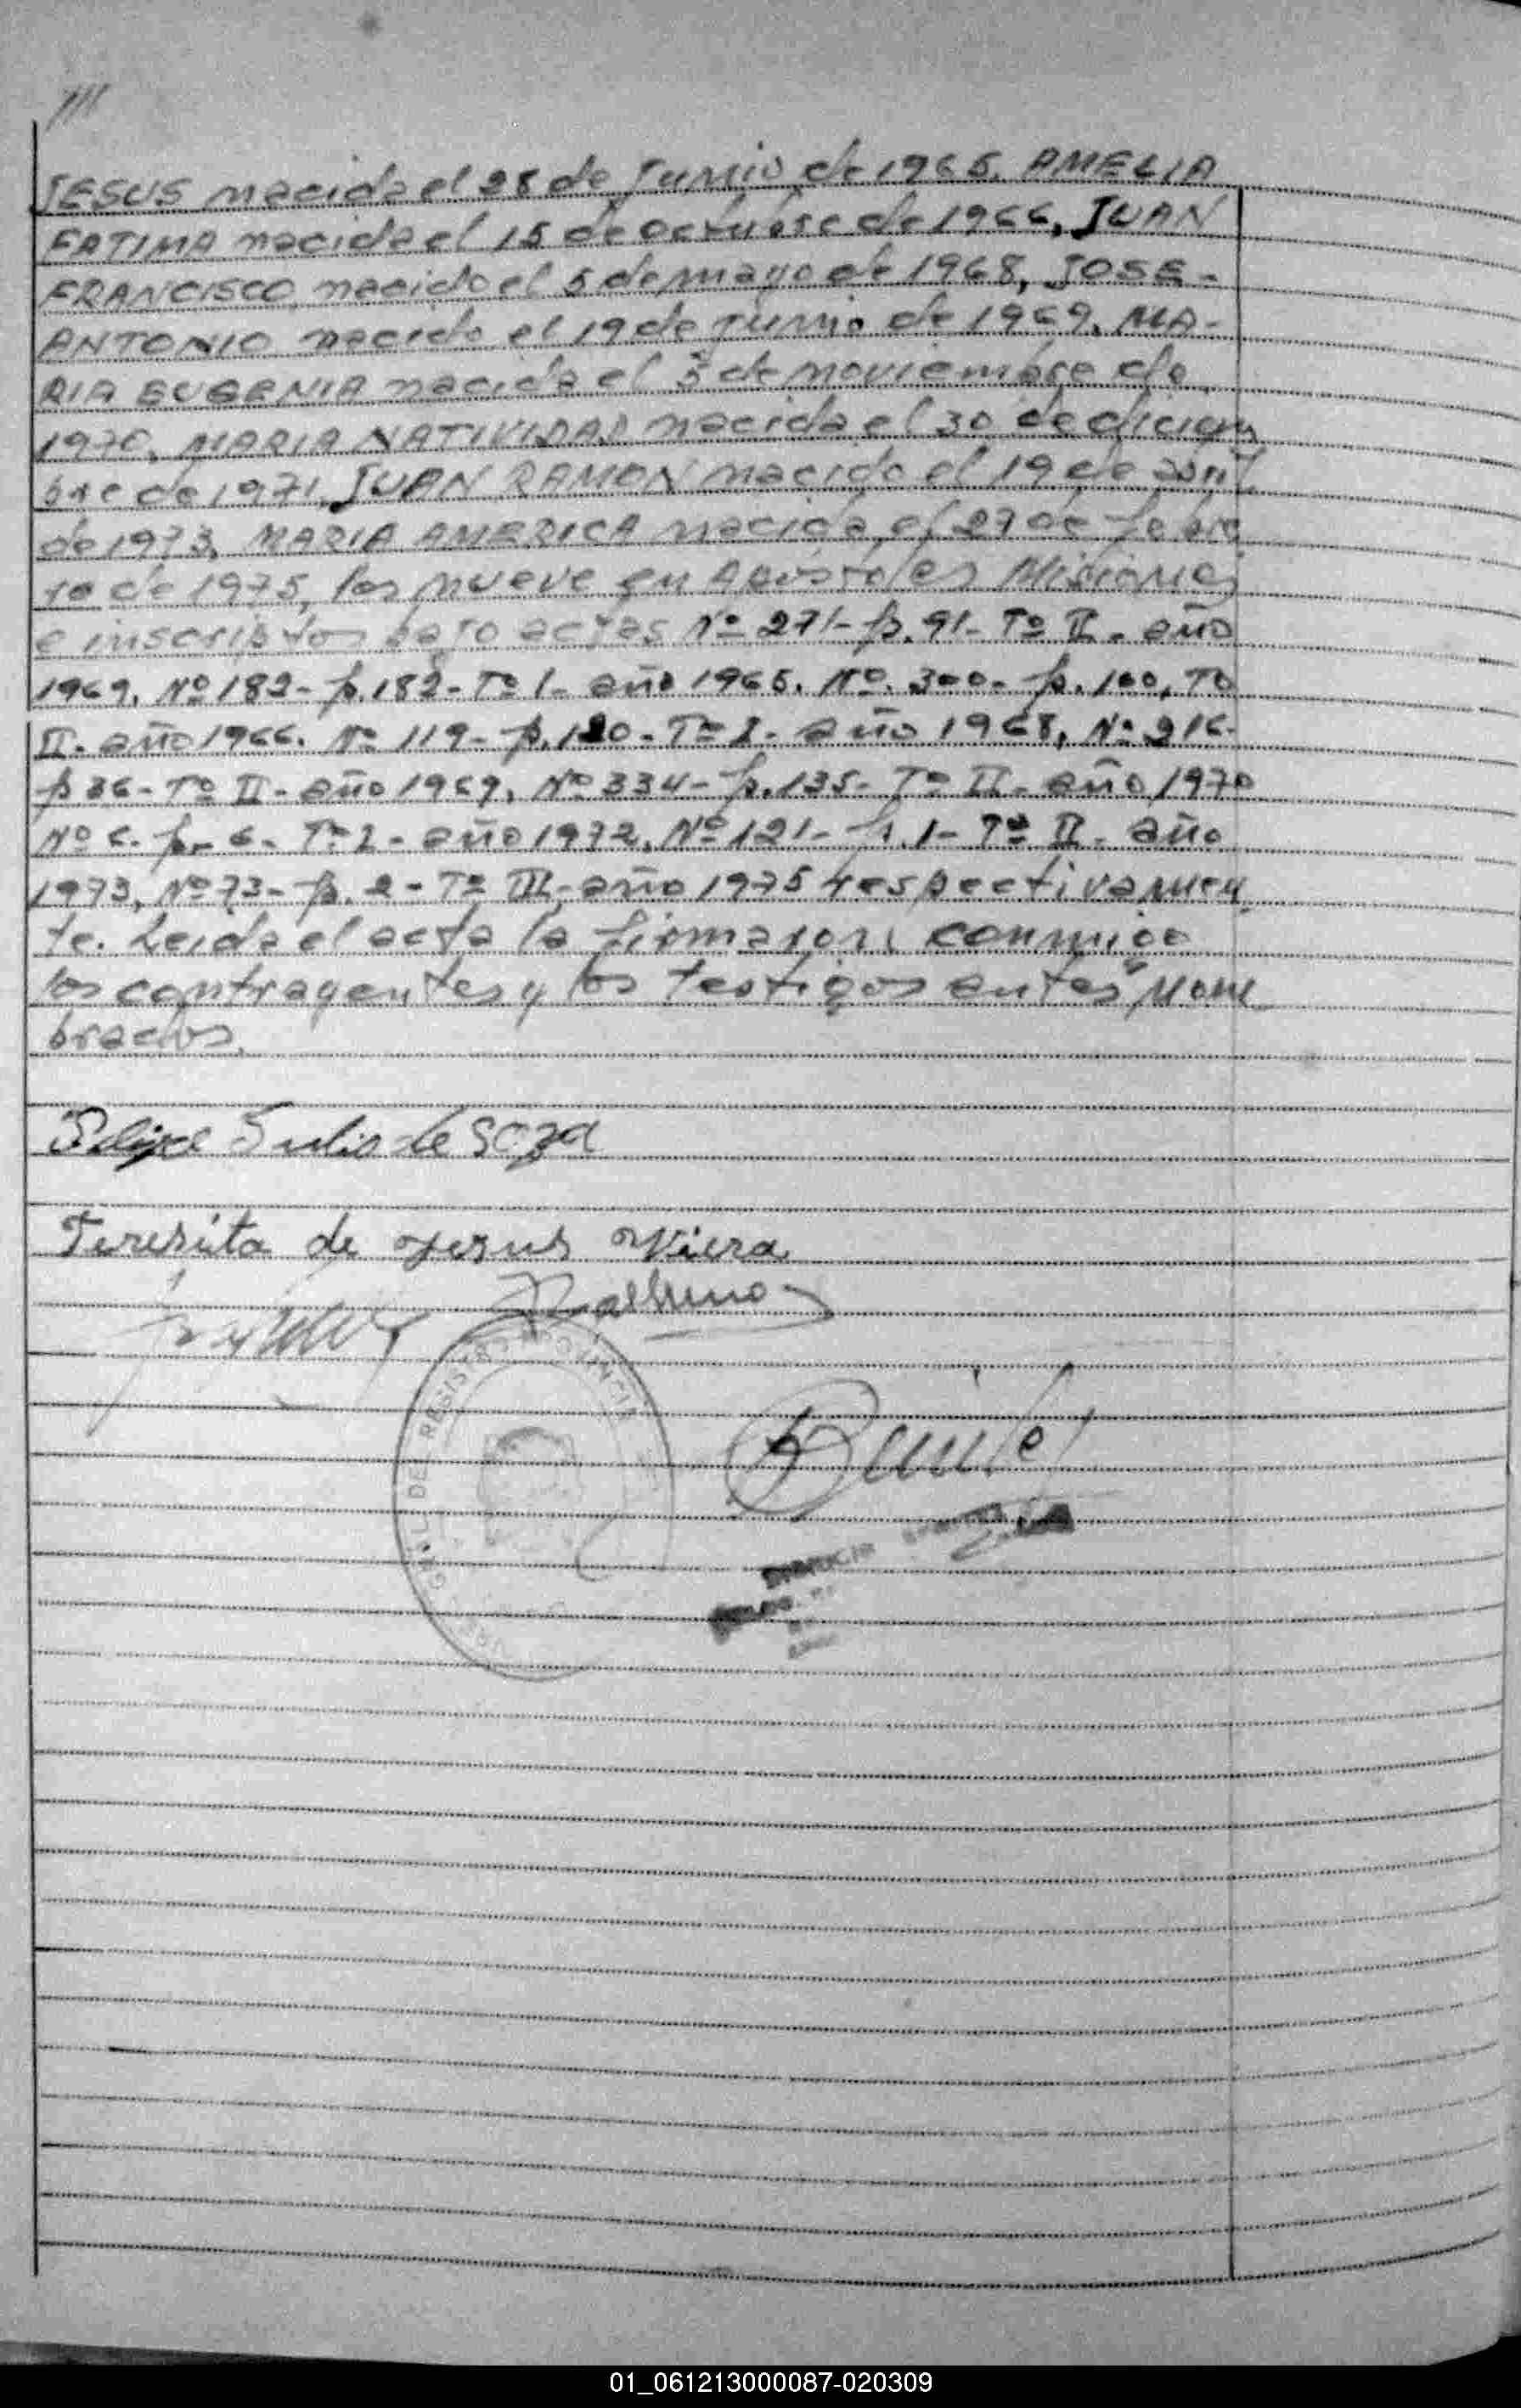 ////
JESUS nacida el 28 de Junio de 1965, AMELIA
FATIMA nacida el 15 de octubre de 1966, JUAN
FRANCISCO nacido el 5 de mayo de 1968, JOSE-
ANTONIO nacido el 19 de junio de 1969, MA-
RIA EUGENIA nacida el 5 de noviembre de
1970, MARIA NATIVIDAD nacida el 30 de diciem
bre de 1971, JUAN RAMON nacido el 19 de abril
de 1973, MARIA AMERICA nacida el 27 de febre
ro de 1975, los nueve en Apóstoles Misiones
e inscriptos bajo actas Nº 271- fº. 91- Tº II- año
1969, Nº 182- fº. 182- Tº I- año 1965, Nº. 300- fº. 100, Tº
II- año 1966. Nº 119- fº. 120- Tº I- año 1968, Nº 216-
fº 36- Tº II- año 1969, Nº 334- fº. 135- Tº II- año 1970
Nº 6- fº- 6- Tº I- año 1972, Nº 121- fº. 1- Tº II- año
1973, Nº 73- fº. 2- Tº III- año 1975 respectivamen
te. Leida el acta la firmaron conmigo
los contrayentes y los testigos antes nom
brados.
Felipe Julio de Soza
Teresita de Jesus Viera
DE REGISTRO
01_061213000087-020309